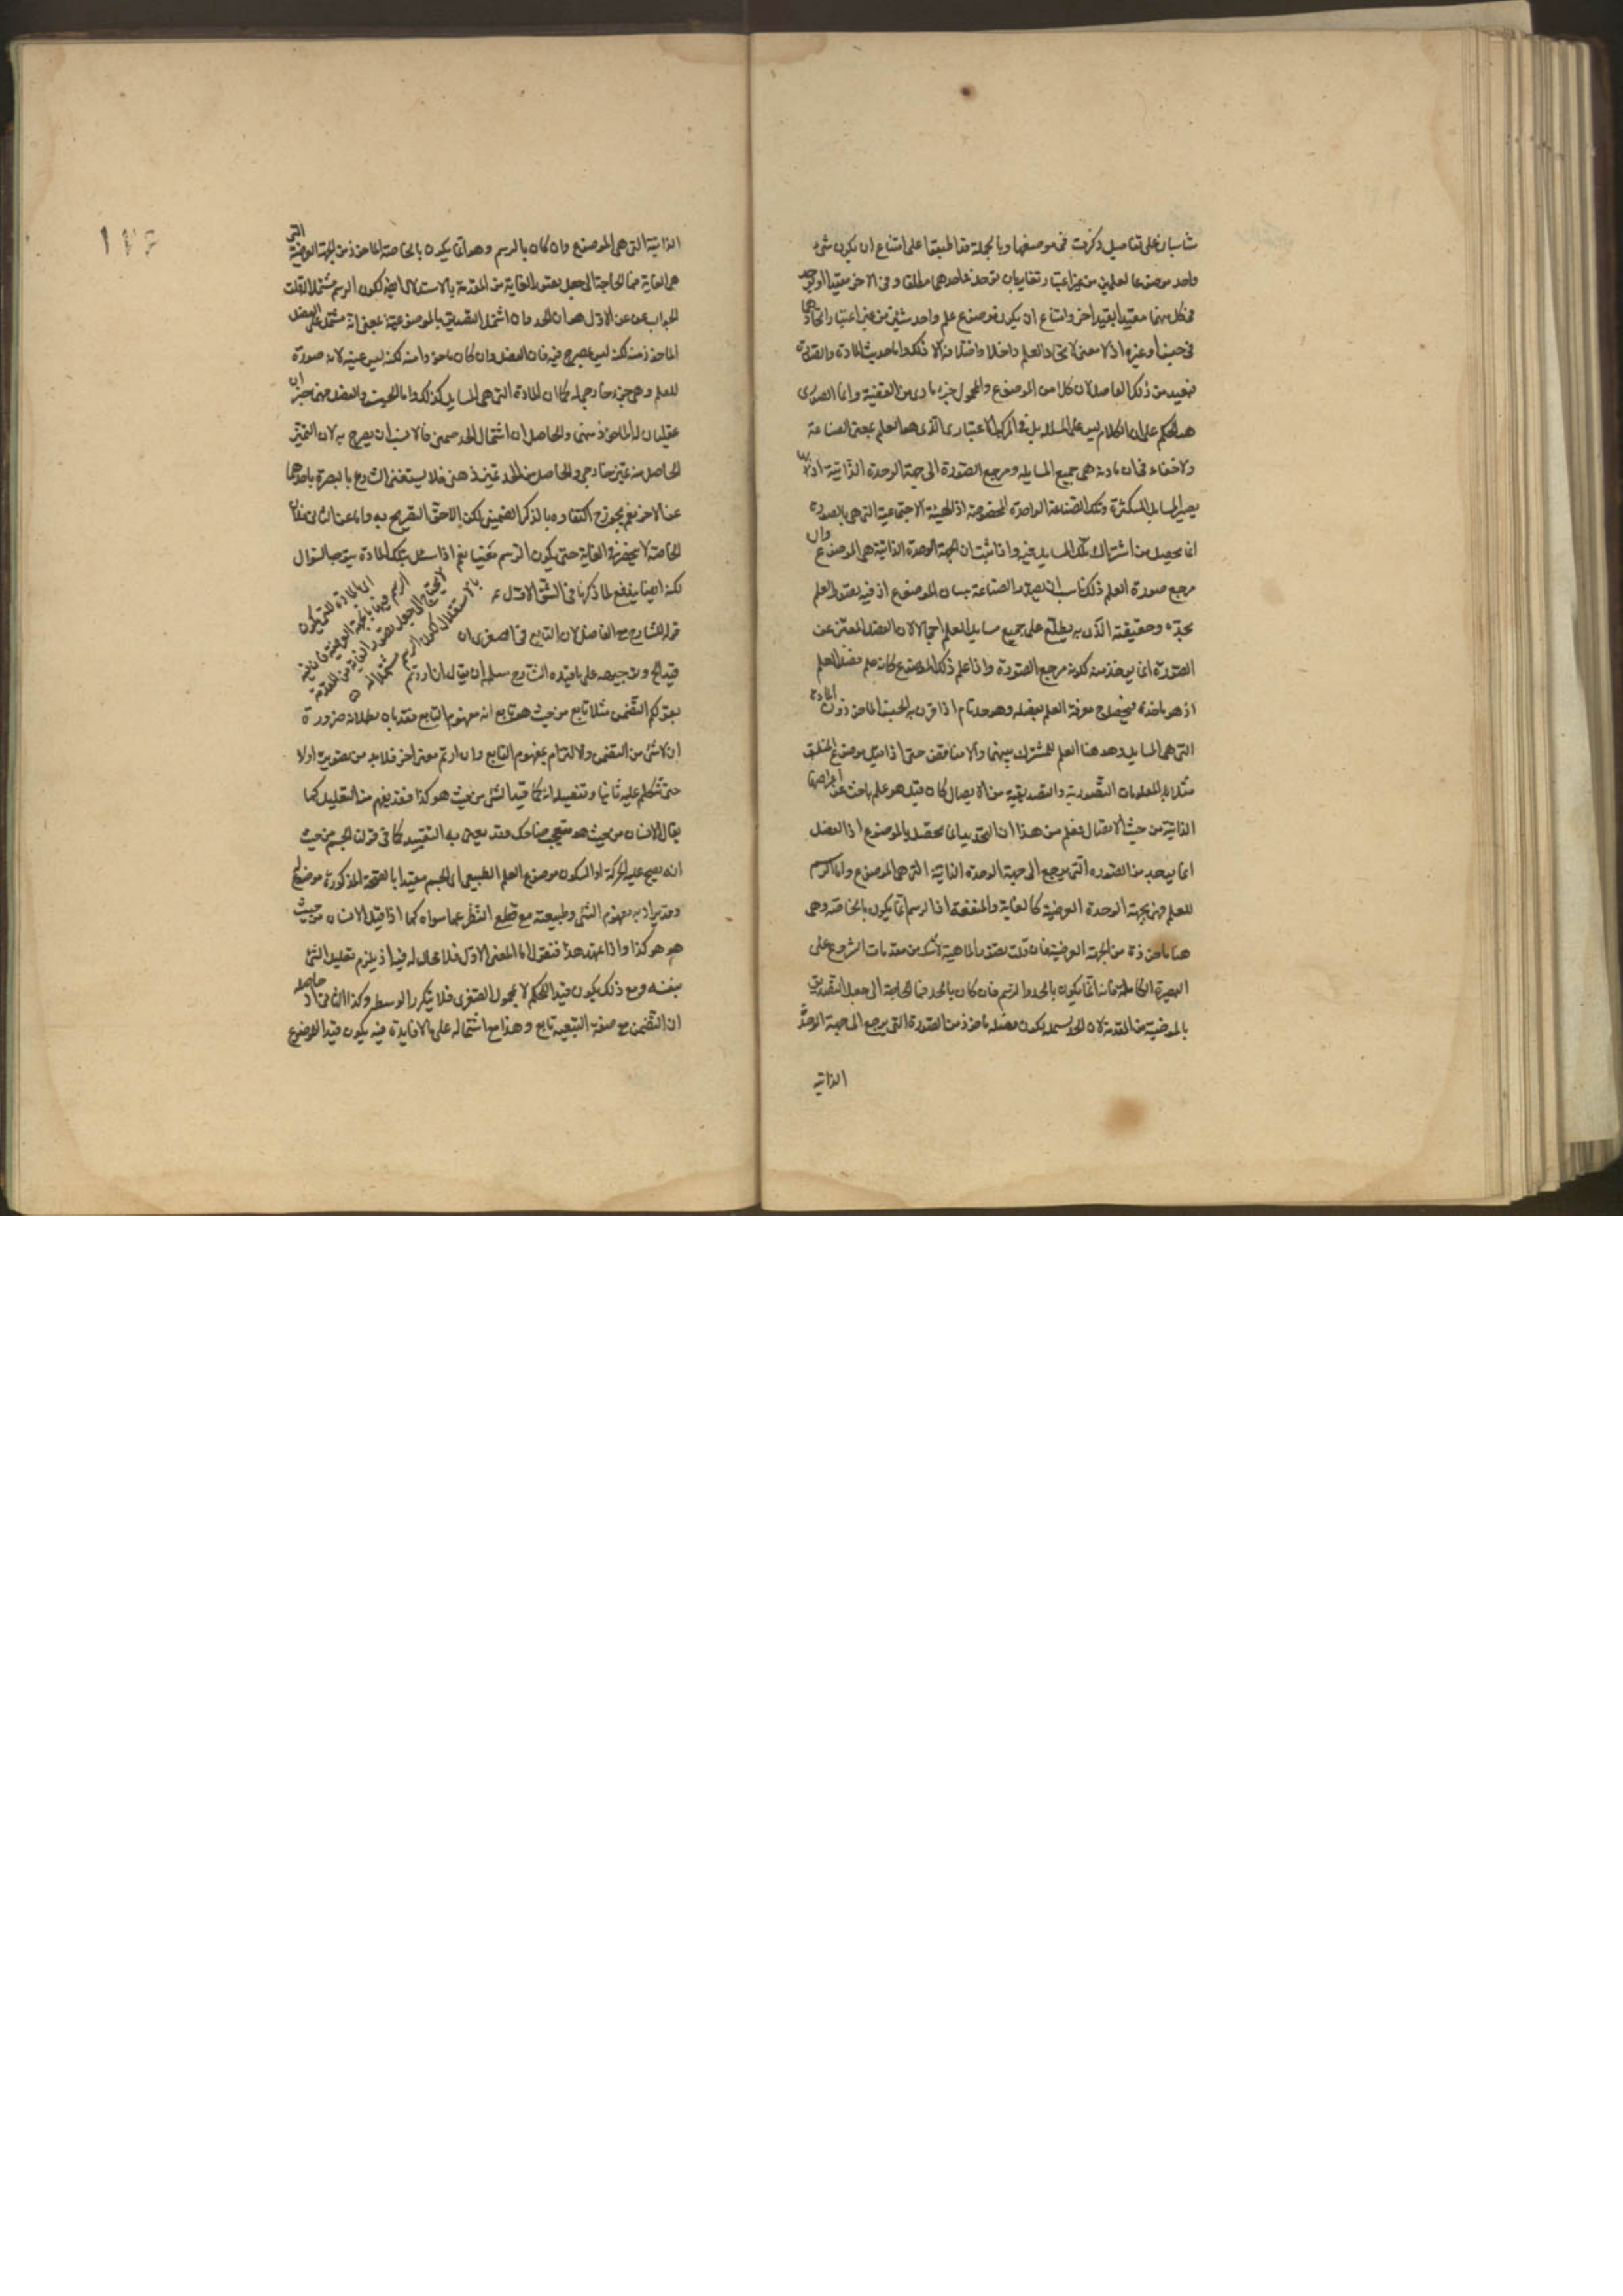 شاسبان على تفاصيل ذكرت في موضعها وبالجملة قد اطبقوا على امتناع ان يكون شئ
واحد موضوعا لعلمين من غير اعتبار تغاير بان يؤخذ في احدهما مطلقا وفي الآخر مقيدا او يؤخذ
في كل منهما مقيدا بقيد آخر وامتناع ان يكون موضوع علم واحد شيئين من غير اعتبار اتحادهما
في جنس او غيره اذ لا معنى لاتحاد العلم واختلافه الا ذلك واما حديث المادة والصورة
فبعيد من ذلك الفاضل لان كلا من الموضوع والمحمول جزء مادي من القضية وانما الصوري
هو الحكم على ان الكلام ليس في المسئلة بل في المركب الاعتباري الذي هو العلم بمعنى الصناعة
ولا خفاء في ان مادته هي جميع المسايل ومرجع الصورة الى جهة الوحدة الذاتية اذ بها
يصير المسايل المتكثرة وتلك الصناعة الواحدة المخصوصة اذ الهيئة الاجتماعية التي هي بالصورة
انما يحصل من اشتراك تلك المسايل فيه واذا ثبت ان جهة الوحدة الذاتية هي الموضوع وان
مرجع صورة العلم ذلك ناسب ان يصدر الصناعة ببيان الموضوع اذ فيه تصور العلم
بحده وحقيقته الذي به يطلع على جميع مسايل العلم اجمالا لان الفصل المميز عن
الصورة انما يؤخذ منه لكونه مرجع الصورة واذا علم ذلك الموضوع كانه علم فصل العلم
اذ هو مأخذه فيحصل معرفة العلم بفصله وهو حد تام اذا قرن به الجنس المأخوذ من المادة
التي هي المسايل وهو هنا العلم المشترك بينهما والا فناقص حتى اذا قيل موضوع المنطق
مثلا هو المعلومات التصورية والتصديقية من الايصال كان قيل هو علم باحث عن اعراضها
الذاتية من حيث الايصال فعلم من هذا ان التحديد انما يحصل بالموضوع اذ الفصل
انما يوجد من الصورة التي يرجع الى جهة الوحدة الذاتية التي هي الموضوع واما الرسم
للعلم فهو بجهة الوحدة العرضية كالغاية والمنفعة اذ الرسم انما يكون بالخاصة وهي
هنا مأخوذة من الجهة العرضية فان قلت تصور الماهية لا شك من مقدمات الشروع على
البصيرة الكاملة ثم انه انما يكون بالحد والرسم فان كان بالحد فما الحاجة الى جعل التصديق
بالموضوعية من المقدمة لان الحد يسمه بكون فصله مأخوذ من الصورة التي يرجع الى جهة الوحدة
الذاتية
الذاتية التي هي الموضوع وان كان بالرسم وهو انما يكون بالخاصة المأخوذ من الجهة العرضية التي
هي الغاية فما الحاجة الى جعل تصور الغاية من المقدمة بالاستقلال ايضا لكون الرسم مشتملا قلت
الجواب عن الاول هو ان الحد وان اشتمل التصديق بالموضوعية بمعنى انه مشتمل على الفصل
المأخوذ منه لكنه ليس بصريح فيه فان الفصل وان كان مأخوذا منه لكنه ليس عينه لانه صورة
للعلم وهي جزء خارجي له كما ان المادة التي هي المسايل كذلك واما الجنس والفصل فهما جزءان
عقليان له مأخوذ منهما والحاصل ان اشتمال الحد ضمني فالانسب ان يصرح به لان التميز
الحاصل منه تميز خارجي والحاصل من الحد تميز ذهني فلا يستغنى الشروع بالبصرة باحدهما
عن الآخر نعم يجوز ح اكتفاؤه بالذكر الضمني لكن اللاحق التصريح به واما عن الثاني فلان
الخاصة لا ينحصر في الغاية حتى يكون الرسم مغنيا نعم اذا سئل بتلك المادة يتوجه السؤال
لكنه ايضا يندفع لما ذكرنا في الشق الاول
اي المادة التي يكون
الرسم فيها بالجهة العرضية فان فيه
لا يحتاج الى جعل تصور الغاية من المقدمة
بالاستقلال لكون الرسم مشتملا له
قوله الشارح مع الفاضل لان التابع في الصغرى ان
قيد الخ وتوجيهه على ما قيده الشارح سلمه ان يقال ان اردتم
بقولكم التضمن مثلا تابع من حيث هو تابع انه مفهوم التابع فقد بان بطلانه ضرورة
ان لا شئ من التضمن والالتزام بمفهوم التابع وان اردتم معنى آخر فلابد من تصويره اولا
حتى نتكلم عليه ثانيا وتفصيله انه كما قيد الشئ من حيث هو كذا فقد يفهم منه التعليل كما
يقال الانسان من حيث هو متعجب ضاحك وقد يعنى به التقييد كما في قولنا الجسم من حيث
انه يصح عليه الحركة او السكون موضوع العلم الطبيعي اي الجسم مقيدا بالصحة المذكورة موضوع
وقد يراد به مفهوم الشئ وطبيعته مع قطع النظر عما سواه كما اذا قيل الانسان من حيث
هو هو كذا واذا تمهد هذا فنقول اما المعنى الاول فلا مجال له فيه اذ يلزم تعليل الشئ
بنفسه ومع ذلك يكون قيد الحكم لا لمحمول الصغرى فلا يتكرر الوسط وكذا الثاني اذ حاصله
ان التضمن مع صفة التبعية تابع وهذا مع اشتماله على ما لا فايدة فيه يكون قيد الموضوع